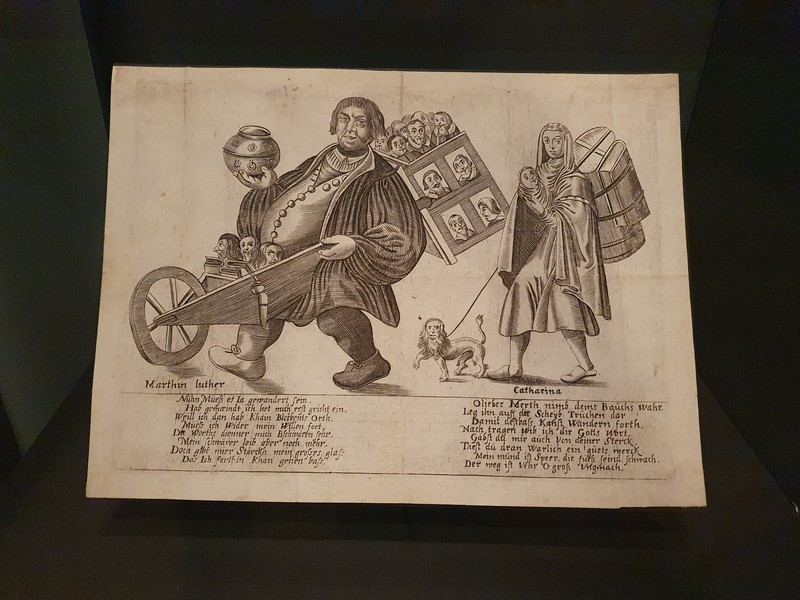 Marthin luther
Nuhn Mueß es Ia gewandert sein.
Hab gemaindt ich het mich erst gricht ein.
Weill ich dan hab Khain Bleibents Orth.
Mueß ich Wider mein Willen fort,
Die worths dienner mich Bschwern sehr.
Mein schwärer leib aber noch mehr.
Doch gibt mier Stärckh mein grosses glaß
Das Ich fort hin Khan gehen baß.
Catharina
O lieber Merth nimb deins Bauchs wahr.
Leg ihn auff die Scheyb Truchen dar
Damit destbaß Kanst Wandern forth.
Nach tragen wil ich dir Gotts wort,
Gabst du mir auch Von deiner Sterck.
Thest du dran Warlich ein guets werck
Mein mund ist Speer, die fueß seind schwach.
Der weg ist Vehr O groß Vngmach.